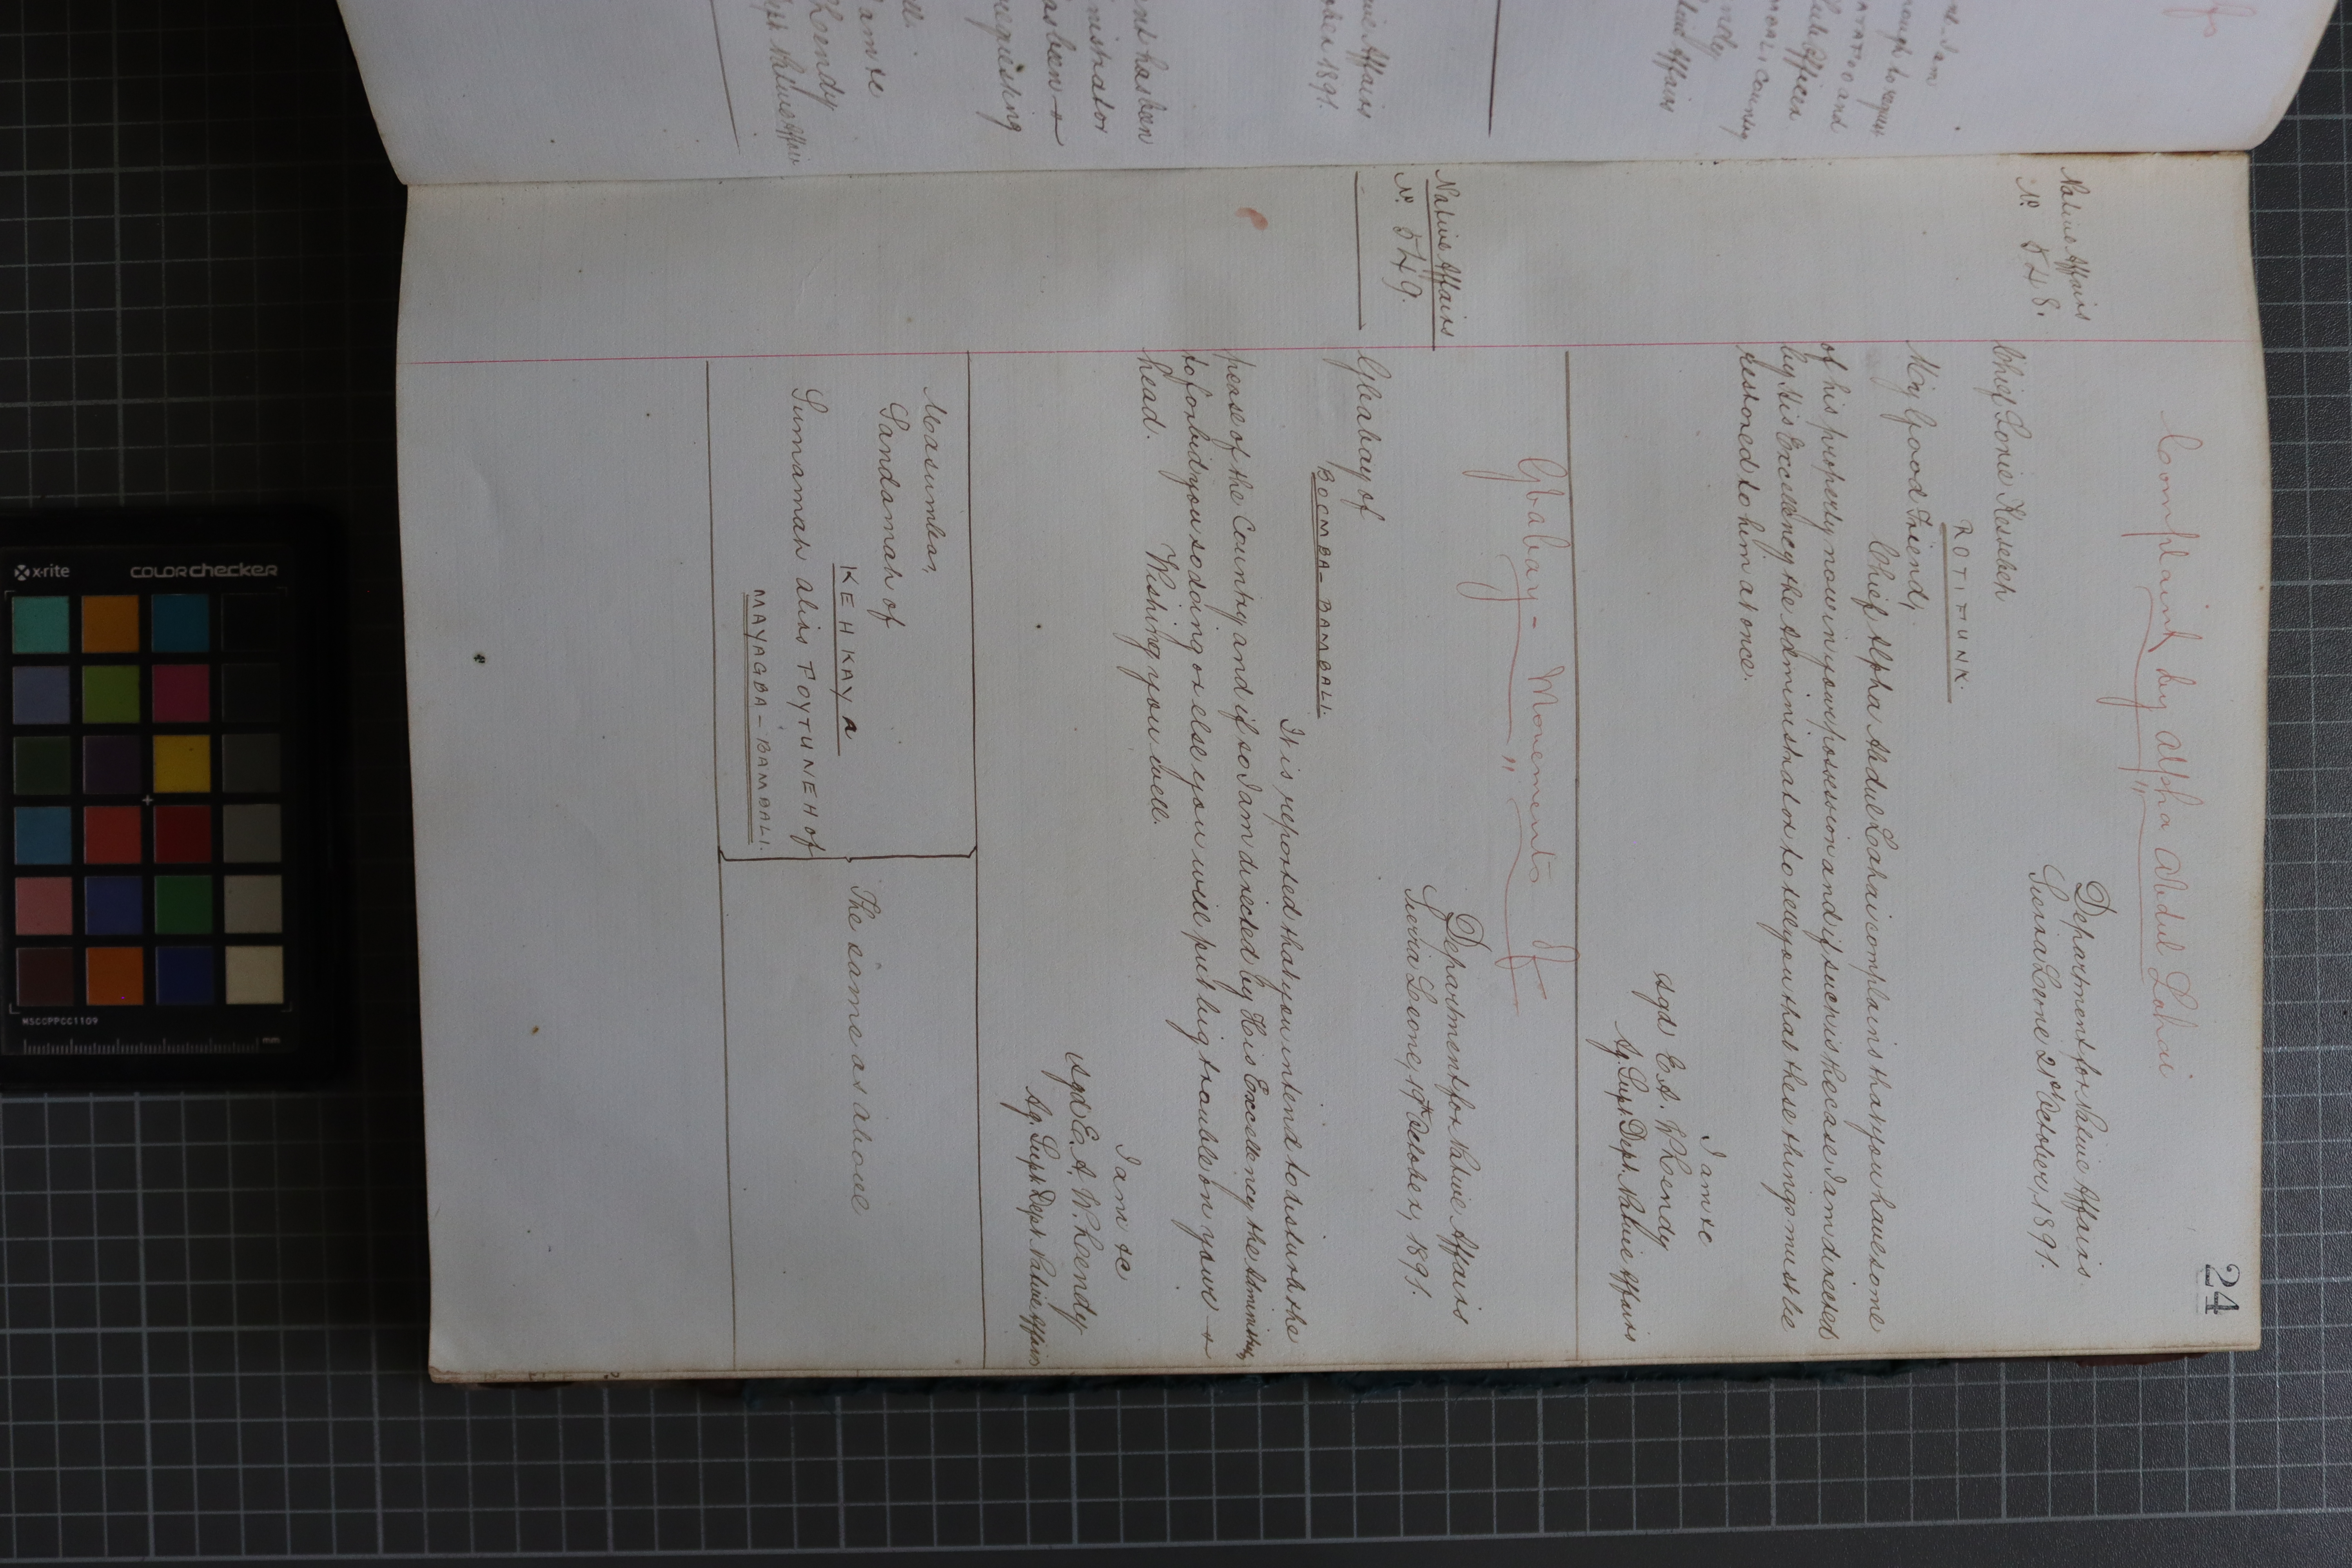 24
Complaint by Alpha Abdul Lahai
Native Affairs
No. 548.
Department for Native Affairs.
Sierra Leone 21st October, 1891.
Chief Sorie Kessebeh
ROTIFUNK.
My Good Friend,
Chief Alpha Abdul Lahai complains that you have some
of his property now in your possession and if such is the case I am directed
by His Excellency the Administrator to tell you that these things must be
restored to him at once.
I am &c
sgd E. A. W. Rendy
Ag. Supt. Dept. Native Affairs
Gbabay - Movements of
Native Affairs
No. 549.
Department for Native Affairs
Sierra Leone, 19th October, 1891.
Gbabay of
BOCMBA-BAMBALI.
It is reported that you intend to disturb the
peace of the Country and if so I am directed by His Excellency the
to forbid you so doing or else you will put big trouble on your
head. Wishing you well.
I am &c
sgd E. A. W. Rendy
Ag. Supt. Dept. Native Affairs
Masumba,
Sandamah of
KEHKAYA
Summamah alias POYTUNEH of
MAYAGBA-BAMBALI.
The same as above
x-rite
COLORchecker
MSCCPPCC1109
mm